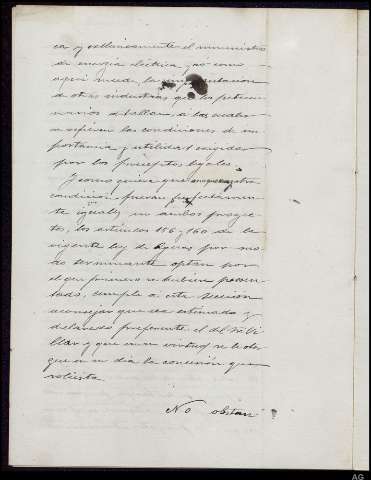 ca y sencillamente el suministro
de energía eléctrica, así como
aquí puede la implantación
de otras industrias que los peticio
narios detallan, a las cuales
se refieren las condiciones de im
portancia y utilidad exigidas
por los preceptos legales.
Y como quiera que
condición fueran perfectamen
te iguales en ambos proyec
tos, los artículos 156 y 160 de la
vigente ley de Aguas por mo
do terminante optan por
el que primero se hubiera presen
tado, cumple a esta Sección
aconsejar que sea estimado y
declarado preferente el del Sr. Vi
llar y que en su virtud se le otor
gue en su día la concesión que
solicita.
No obstan
AG